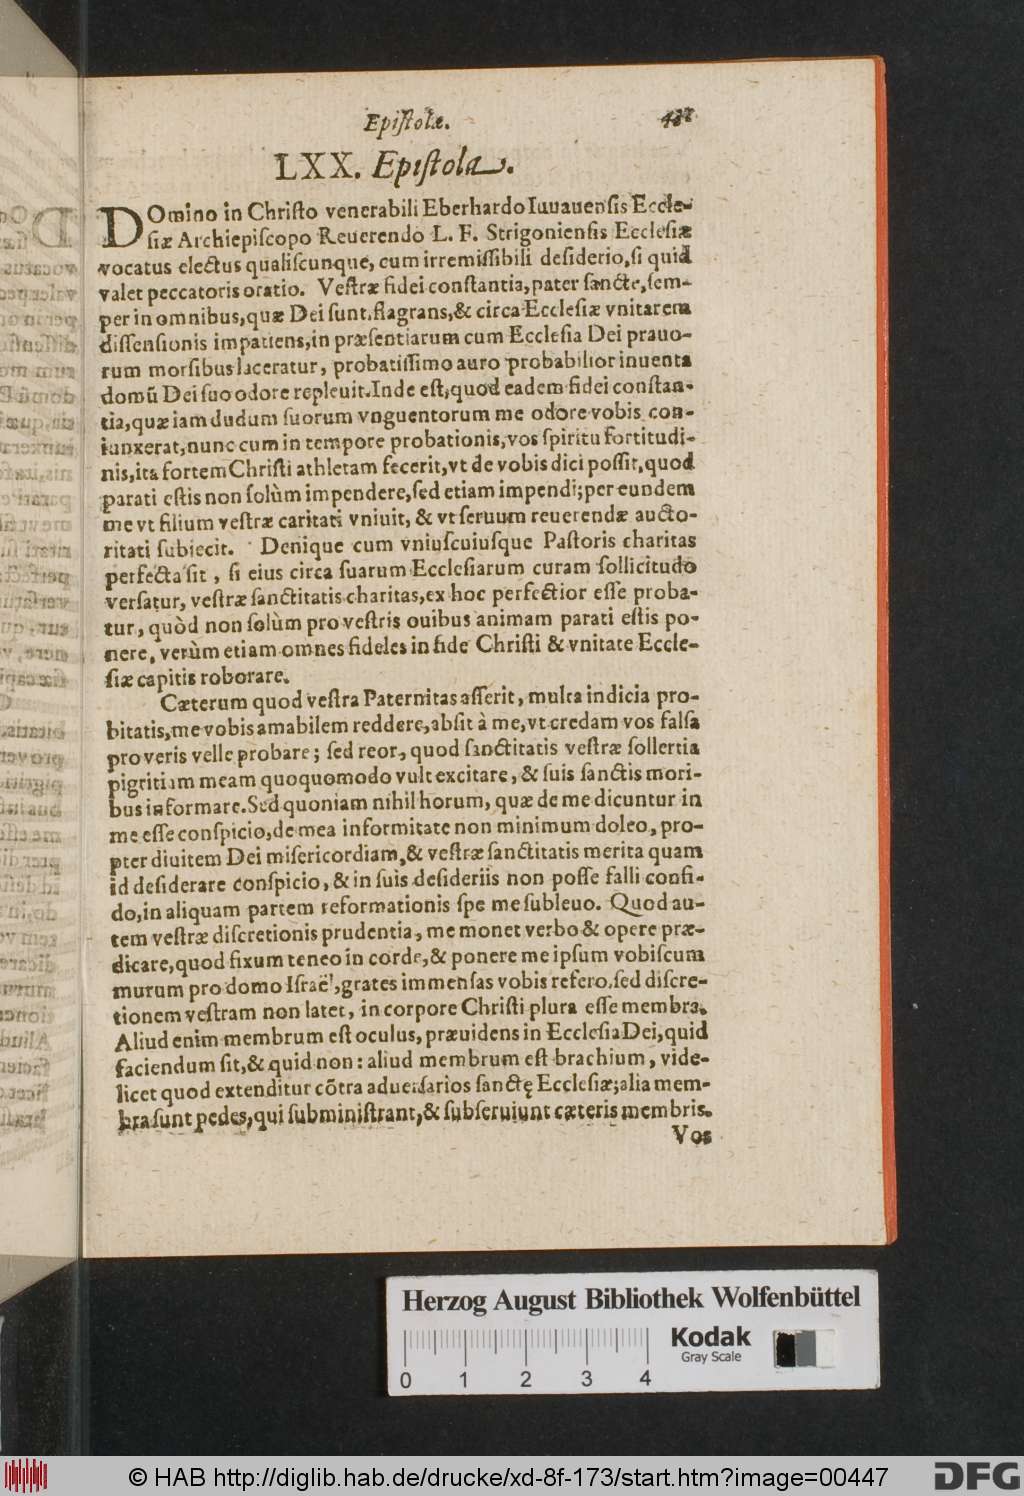 Epistolæ.
LXX. Epistola.
DOmino in Christo venerabili Eberhardo Iuuauensis Eccle-
siæ Archiepiscopo Reuerendo L. F. Strigoniensis Ecclesiæ
vocatus electus qualiscunque, cum irremissibili desiderio, si quid
valet peccatoris oratio. Vestræ fidei constantia, pater sancte, sem-
per in omnibus, quæ Dei sunt, flagrans, & circa Ecclesiæ vnitarem
dissensionis impatiens, in præsentiarum cum Ecclesia Dei prauo-
rum morsibus laceratur, probatissimo auro probabilior inuenta
domū Dei suo odore repleuit. Inde est, quod eadem fidei constan-
tia, quæ iam dudum suorum vnguentorum me odore vobis con-
iunxerat, nunc cum in tempore probationis, vos spiritu fortitudi-
nis, ita fortem Christi athletam fecerit, vt de vobis dici possit, quod
parati estis non solùm impendere, sed etiam impendi; per eundem
me vt filium vestræ caritati vniuit, & vt seruum reuerendæ aucto-
ritati subiecit. Denique cum vniuscuiusque Pastoris charitas
perfecta sit, si eius circa suarum Ecclesiarum curam sollicitudo
versatur, vestræ sanctitatis charitas, ex hoc perfectior esse proba-
tur, quòd non solùm pro vestris ouibus animam parati estis po-
nere, verùm etiam omnes fideles in fide Christi & vnitate Eccle-
siæ capitis roborare.
Cæterum quod vestra Paternitas asserit, multa indicia pro-
bitatis, me vobis amabilem reddere, absit à me, vt credam vos falsa
pro veris velle probare; sed reor, quod sanctitatis vestræ sollertia
pigritiam meam quoquomodo vult excitare, & suis sanctis mori-
bus informare. Sed quoniam nihil horum, quæ de me dicuntur in
me esse conspicio, de mea informitate non minimum doleo, pro-
pter diuitem Dei misericordiam, & vestræ sanctitatis merita quam
id desiderare conspicio, & in suis desideriis non posse falli confi-
do, in aliquam partem reformationis spe me subleuo. Quod au-
tem vestræ discretionis prudentia, me monet verbo & opere præ-
dicare, quod fixum teneo in corde, & ponere me ipsum vobiscum
murum pro domo Israël, grates immensas vobis refero, sed discre-
tionem vestram non latet, in corpore Christi plura esse membra.
Aliud enim membrum est oculus, præuidens in Ecclesia Dei, quid
faciendum sit, & quid non: aliud membrum est brachium, vide-
licet quod extenditur cōtra aduersarios sanctę Ecclesiæ; alia mem-
bra sunt pedes, qui subministrant, & subseruiunt cæteris membris.
Vos
Herzog August Bibliothek Wolfenbüttel
Kodak
Gray Scale
0 1 2 3 4
© HAB http://diglib.hab.de/drucke/xd-8f-173/start.htm?image=00447
DFG